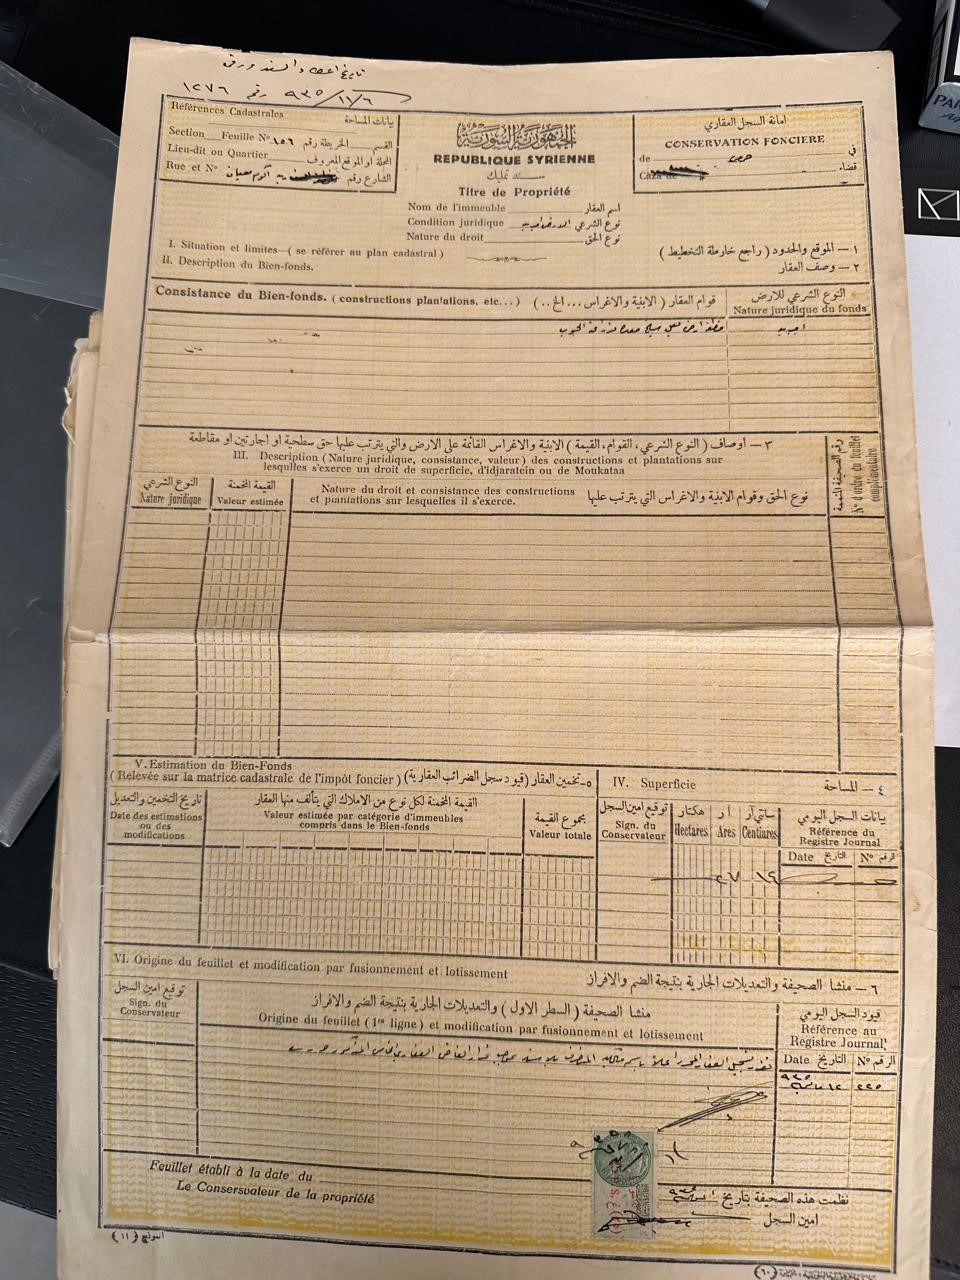 تاريخ اعطاء السند ورقم
٩٣٥/١١/٦ رقم ١٢٧٦
Références Cadastrales بيانات المساحة
Section Feuille Nº ١٥٦ الخريطة رقم القسم
Lieu-dit ou Quartier المحلة او الموقع المعروف
Rue et Nº الشارع رقم
الجمهورية السورية
REPUBLIQUE SYRIENNE
سند تمليك
Titre de Propriété
Nom de l'immeuble اسم العقار
Condition juridique نوع الشرعي
Nature du droit نوع الحق
امانة السجل العقاري
CONSERVATION FONCIERE
de حمص في
Caza de قضاء
I. Situation et limites—( se référer au plan cadastral )
١ — الموقع والحدود ( راجع خارطة التخطيط )
II. Description du Bien-fonds.
٢ — وصف العقار
Consistance du Bien-fonds. ( constructions plantations, etc... ) قوام العقار ( الابنية والاغراس ... الخ . . )
النوع الشرعي للارض
Nature juridique du fonds
قطعة ارض
اميريه
٣ — اوصاف ( النوع الشرعي ، القوام ، القيمة ) الابنية والاغراس القائمة على الارض والتي يترتب عليها حق سطحية او اجارتين او مقاطعة
III. Description ( Nature juridique, consistance, valeur ) des constructions et plantations sur
lesquelles s'exerce un droit de superficie, d'idjaratein ou de Moukataa
رقم الصحيفة المتممة
Nº d'ordre du feuillet
complémentaire
النوع الشرعي
Nature juridique
القيمة المخمنة
Valeur estimée
Nature du droit et consistance des constructions
et plantations sur lesquelles il s'exerce.
نوع الحق وقوام الابنية والاغراس التي يترتب عليها
V. Estimation du Bien-Fonds
( Relevée sur la matrice cadastrale de l'impôt foncier ) ٥ — تخمين العقار ( قيود سجل الضرائب العقارية )
IV. Superficie ٤ — المساحة
تاريخ التخمين والتعديل
Date des estimations
ou des
modifications
القيمة المخمنة لكل نوع من الاملاك التي يتألف منها العقار
Valeur estimée par catégorie d'immeubles
compris dans le Bien-fonds
مجموع القيمة
Valeur totale
توقيع امين السجل
Sign. du
Conservateur
هكتار
Hectares
آر
Ares
سانتي آر
Centiares
بيانات السجل اليومي
Référence du
Registre Journal
Date التاريخ Nº الرقم
٢٧ ١٤
VI. Origine du feuillet et modification par fusionnement et lotissement
٦ — منشأ الصحيفة والتعديلات الجارية بنتيجة الضم والافراز
توقيع امين السجل
Sign. du
Conservateur
منشأ الصحيفة ( السطر الاول ) والتعديلات الجارية بنتيجة الضم والافراز
Origine du feuillet ( 1re ligne ) et modification par fusionnement et lotissement
قيود السجل اليومي
Référence au
Registre Journal
Date التاريخ Nº الرقم
٩٣٥
٢٢٥
Feuillet établi à la date du
Le Conservateur de la propriété
نظمت هذه الصحيفة بتاريخ
امين السجل
انموذج ( ١١ )
( ٦٠ )